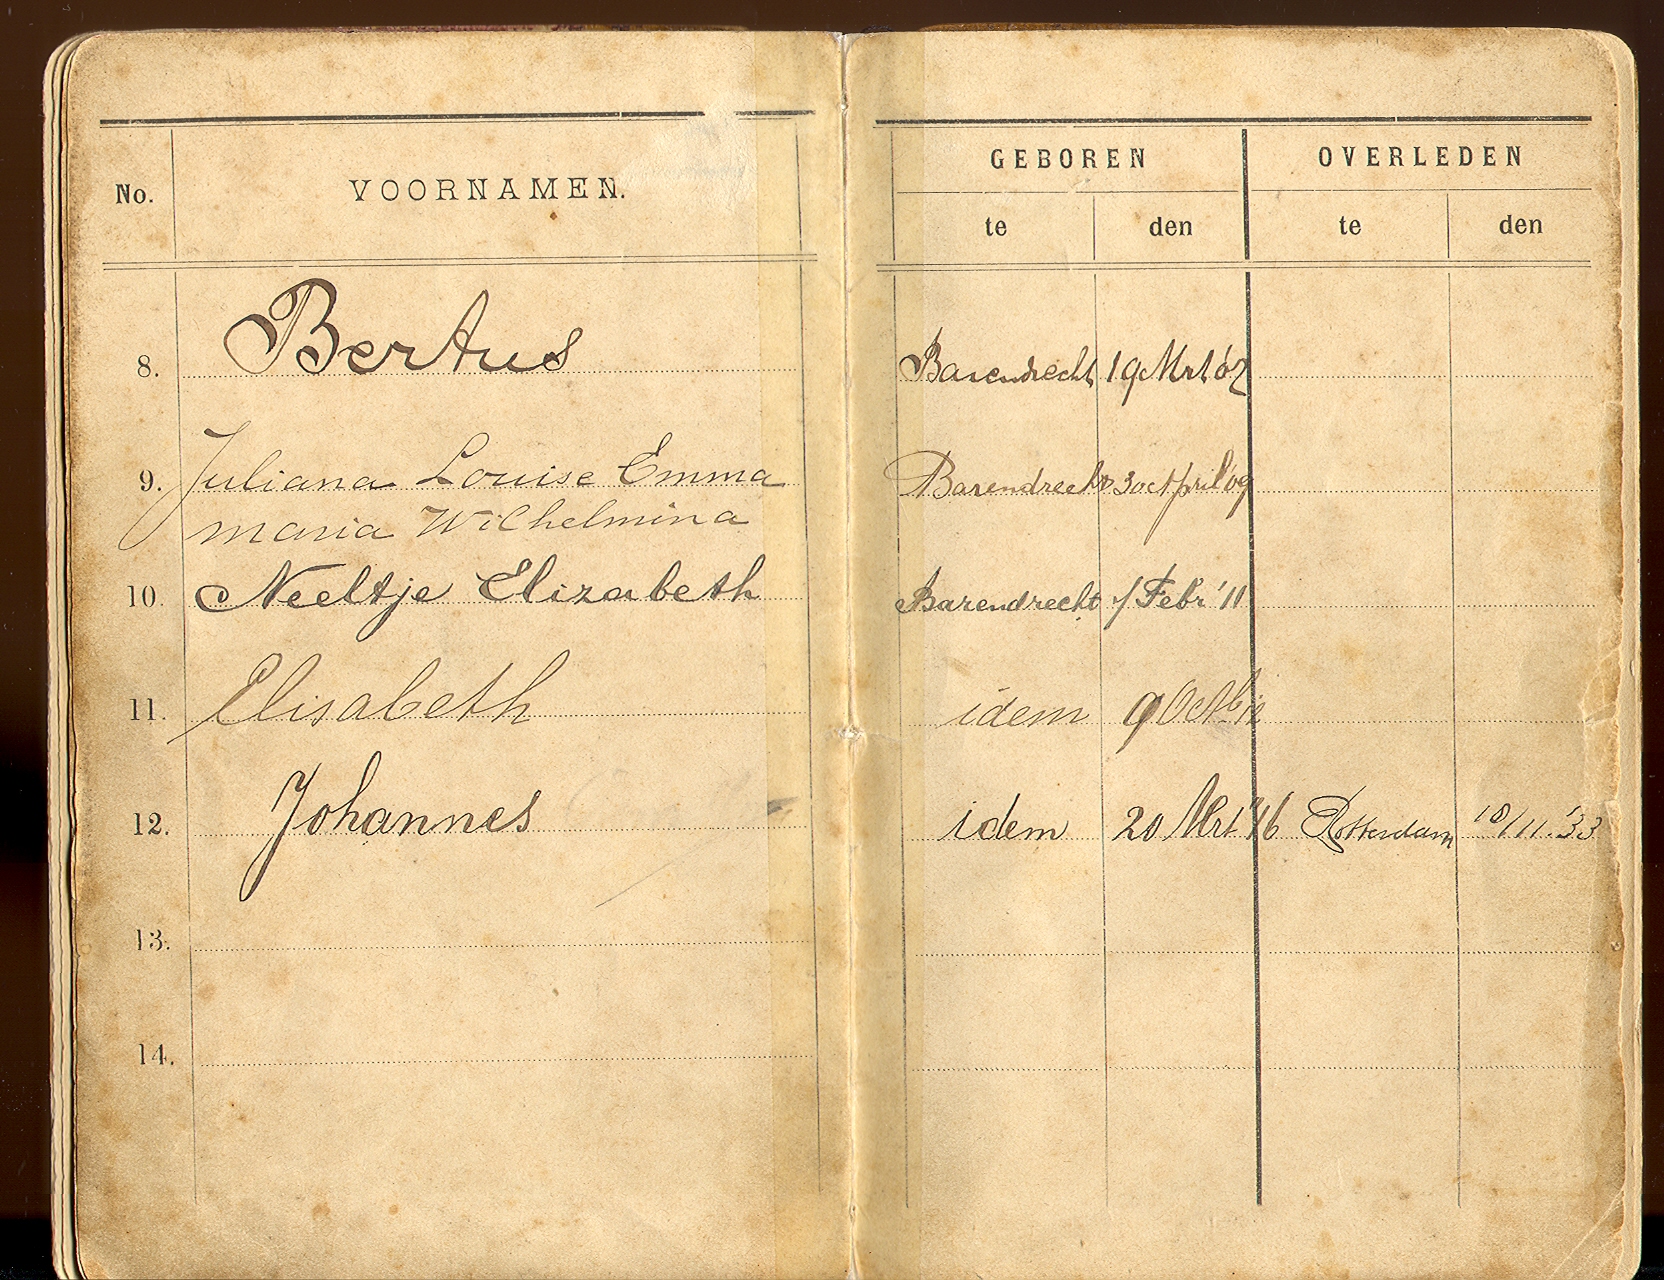 No. VOORNAMEN. GEBOREN OVERLEDEN
te den te den
8. Bertus Barendrecht 19 Mrt '07
9. Juliana Louise Emma Barendrecht 30 April '09
Maria Wilhelmina
10. Neeltje Elizabeth Barendrecht 1 Febr '11
11. Elisabeth idem 9 Oct
12. Johannes idem 20 Mrt '16 Rotterdam 10/11.'33
13.
14.